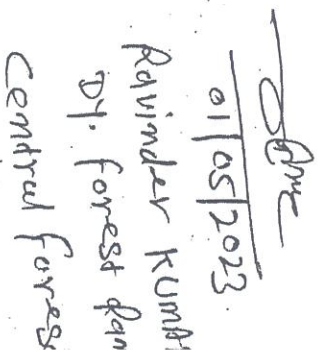 01/05/2023
Ravinder Kuma
Dy. Forest Ran
Central Fores